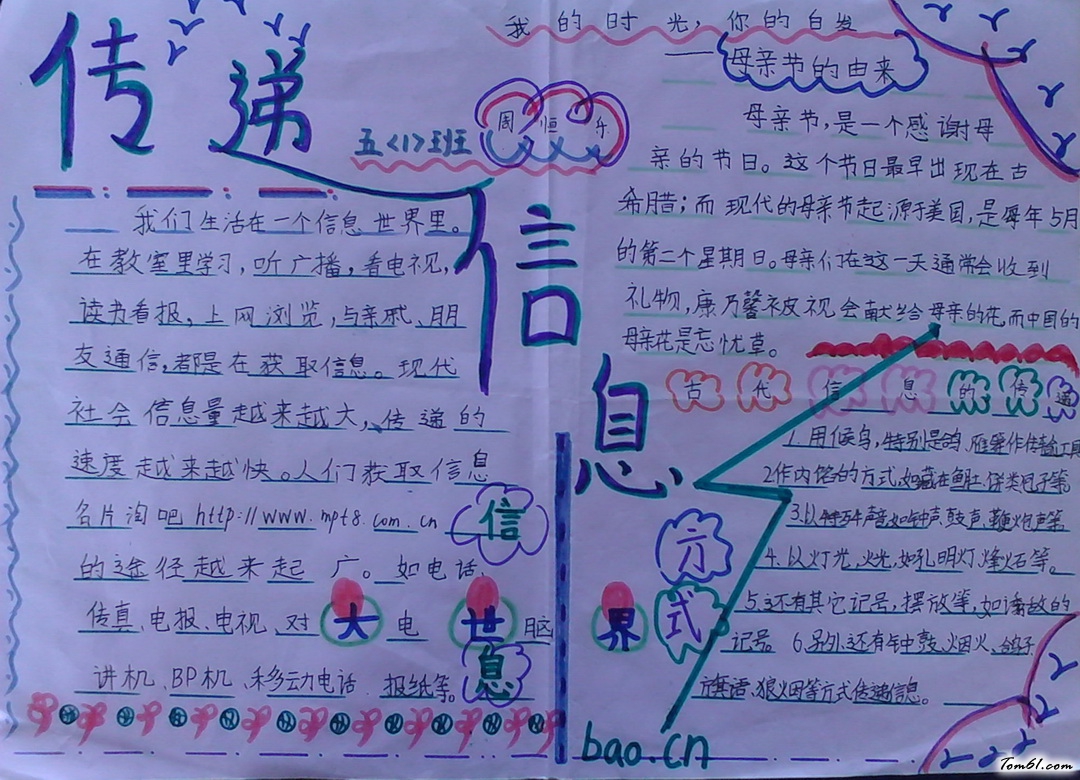 传递
信息
五<1>班
周恒乐
我们生活在一个信息世界里。
在教室里学习，听广播，看电视，
读书看报，上网浏览，与亲戚、朋
友通信，都是在获取信息。现代
社会信息量越来越大，传递的
速度越来越快。人们获取信息
名片淘吧http://www.mpt8.com.cn
的途径越来起广。如电话、
传真、电报、电视、对大电世脑
讲机、BP机、移动电话、报纸等。
信
息
界
方
式
bao.cn
我的时光，你的白发
——母亲节的由来
母亲节，是一个感谢母
亲的节日。这个节日最早出现在古
希腊；而现代的母亲节起源于美国，是每年5月
的第二个星期日。母亲们在这一天通常会收到
礼物，康乃馨被视会献给母亲的花，而中国的
母亲花是忘忧草。
古代信息的传递
1.用候鸟，特别是鸽、雁等作传输工具
2作内馅的方式，如藏在鱼肚、饼类包子等
3.以特殊声音，如钟声、鼓声、鞭炮声等
4.以灯光，火光，如孔明灯、烽火等。
5.还有其它记号，摆放等，如诸故的
记号。6.另外，还有钟鼓、烟火、鸽子
旗语、狼烟等方式传递信息。
Tom61.com